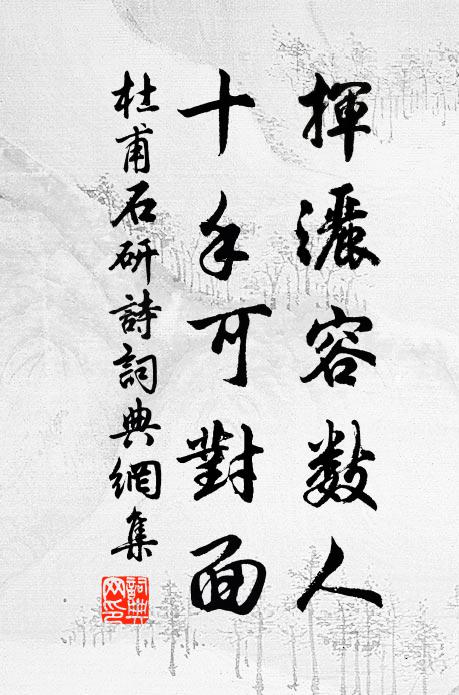 揮灑容數人
十手可對面
杜甫石研詩詞典網集
詞典
网印